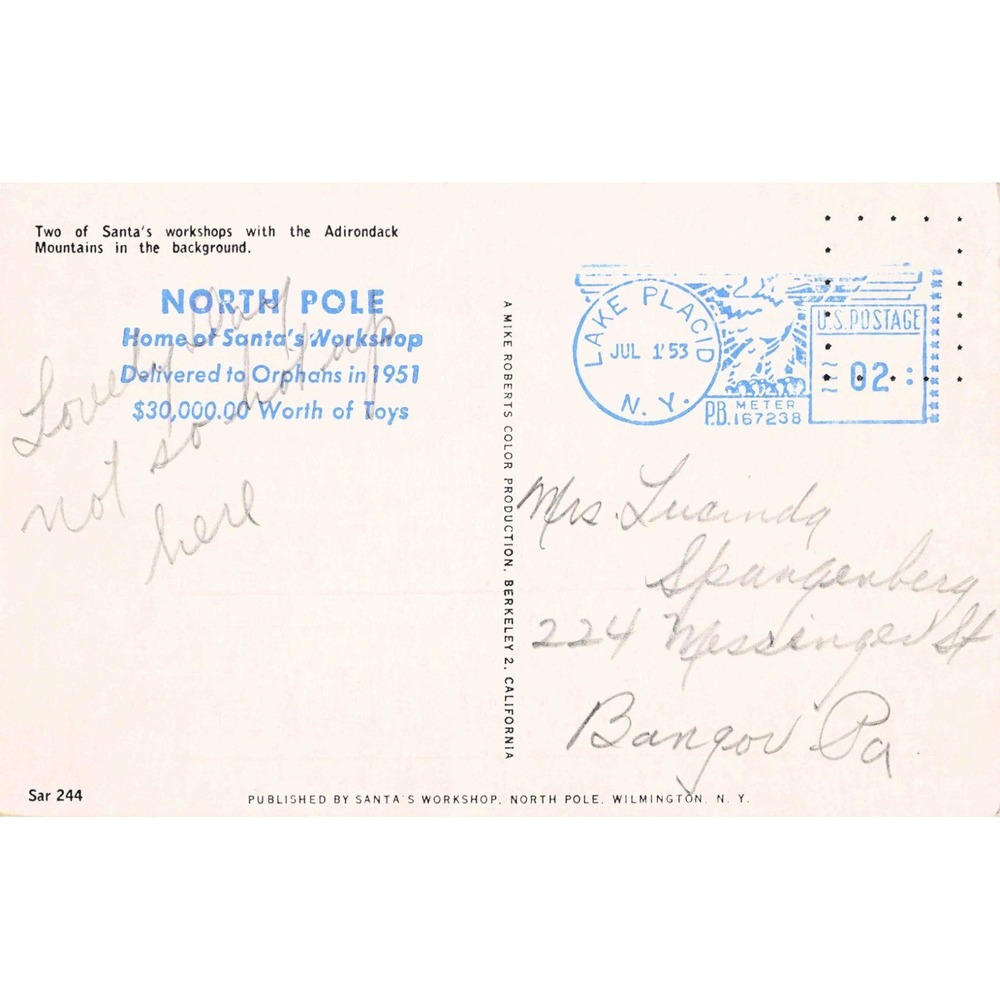 Two of Santa's workshops with the Adirondack
Mountains in the background.
NORTH POLE
Home of Santa's Workshop
Delivered to Orphans in 1951
$30,000.00 Worth of Toys
Lovely day
not so hot up
here
A MIKE ROBERTS COLOR PRODUCTION, BERKELEY 2, CALIFORNIA
LAKE PLACID
JUL 1 '53
N. Y.
U.S. POSTAGE
02
P.B. METER
167238
Mrs. Lucinda
Spangenberg
224 Messinger St
Bangor Pa
Sar 244
PUBLISHED BY SANTA'S WORKSHOP, NORTH POLE, WILMINGTON, N. Y.